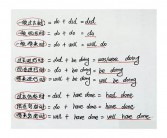 一般过去时 = do + did = did
一般现在时 = do + do = do
一般将来时 = do + will = will do
过去进行时 = did + be doing = was/were doing
现在进行时 = do + be doing = be doing
将来进行时 = will + be doing = will be doing
过去完成时 = did + have done = had done
现在完成时 = do + have done = have done
将来完成时 = will + have done = will have done